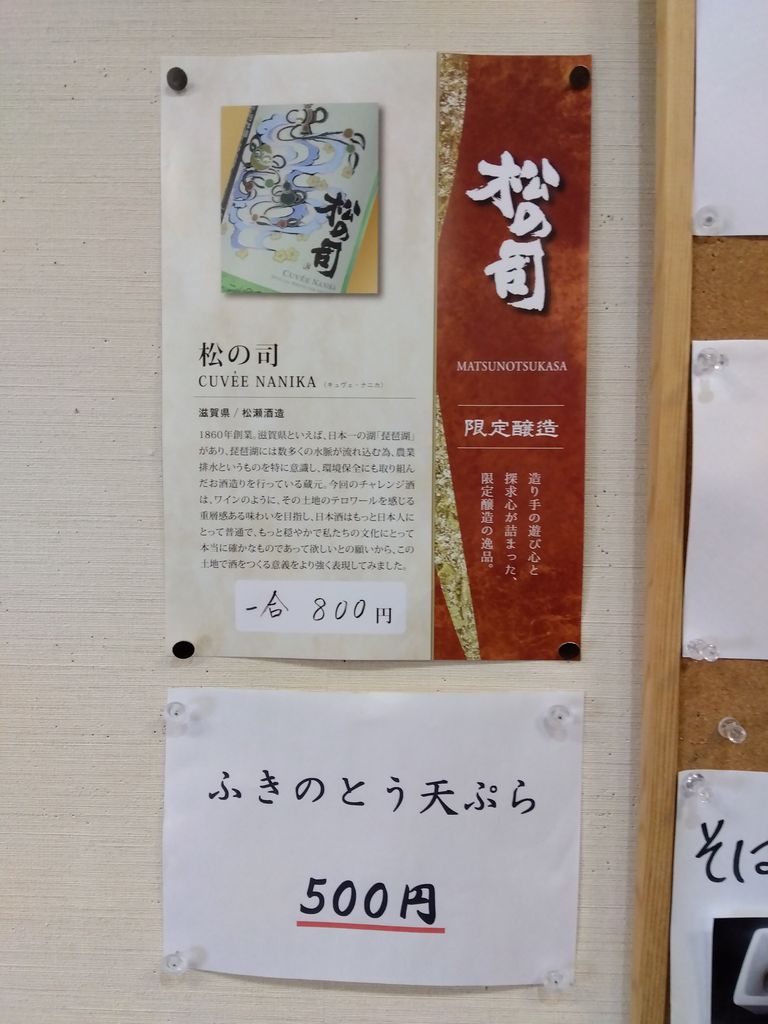 松の司
CUVÉE NANIKA
松の司
CUVÉE NANIKA (キュヴェ・ナニカ)
滋賀県 / 松瀬酒造
1860年創業。滋賀県といえば、日本一の湖「琵琶湖」
があり、琵琶湖には数多くの水脈が流れ込む為、農業
排水というものを特に意識し、環境保全にも取り組ん
だお酒造りを行っている蔵元。今回のチャレンジ酒
は、ワインのように、その土地のテロワールを感じる
重層感ある味わいを目指し、日本酒はもっと日本人に
とって普通で、もっと穏やかで私たちの文化にとって
本当に確かなものであって欲しいとの願いから、この
土地で酒をつくる意義をより強く表現してみました。
一合 800円
松の司
MATSUNOTSUKASA
限定醸造
造り手の遊び心と
探求心が詰まった、
限定醸造の逸品。
ふきのとう天ぷら
500円
そば